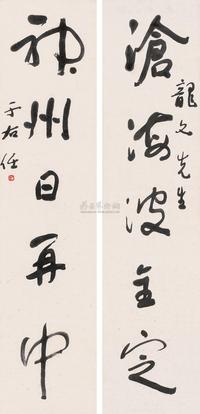 滄海波全定
龍文先生
神州日再中
于右任